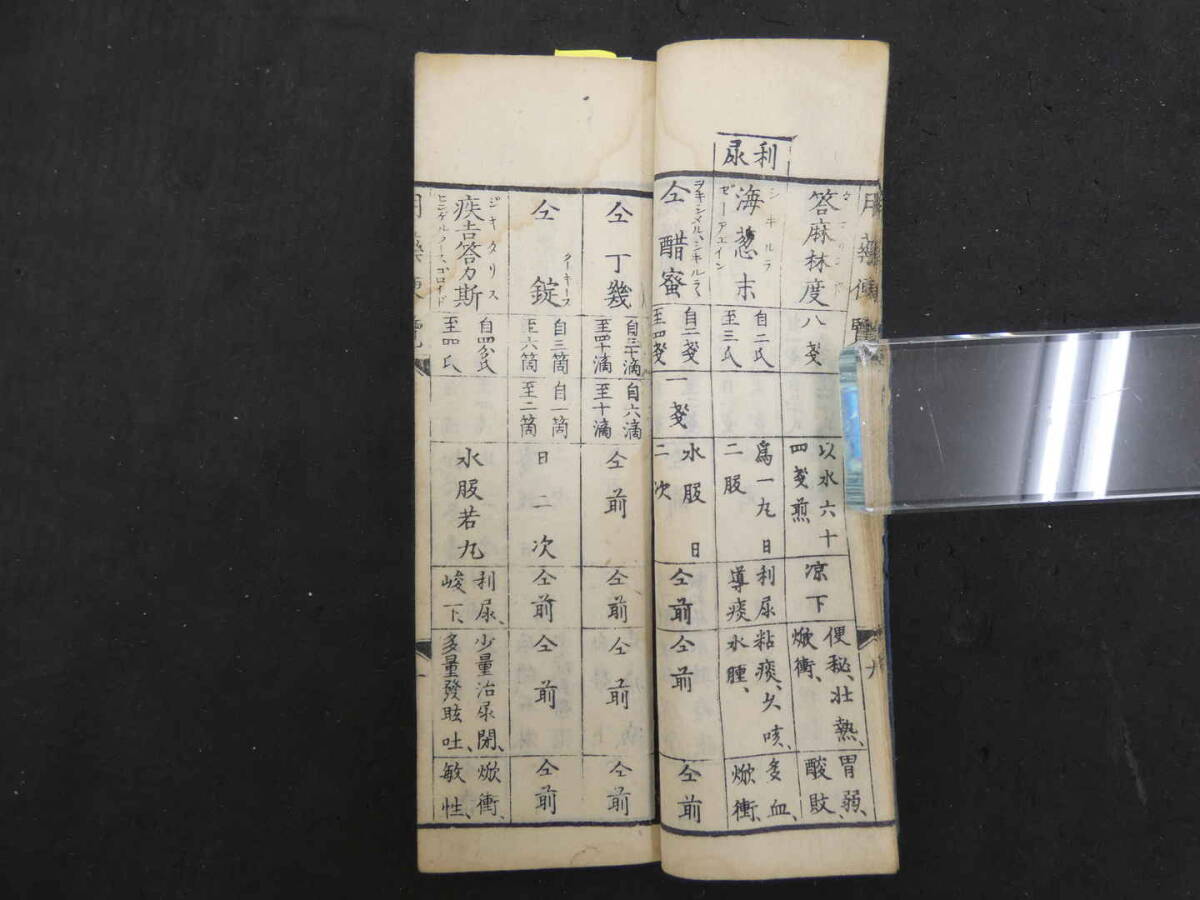 利尿
答麻林度
八戔
以水六十四戔煎
凉下
便秘、壮熱、焮衝、
胃弱、酸敗、
シキルラ
海葱末
ゼーアユイン
自二氏至三氏
為一丸日二服
利尿導痰
粘痰、久咳、水腫、
多血、焮衝、
ヲキシメル、シキルラ
仝醋蜜
自二戔至四戔
一戔
水服日二次
仝前
仝前
仝前
仝丁幾
自三十滴至四十滴
自六滴至十滴
仝前
仝前
仝前
仝前
クーキース
仝錠
自三箇至六箇
自一箇至二箇
日二次
仝前
仝前
仝前
ジキタリス
疾吉答力斯
至四氏
水服若丸
利尿、峻下、
少量治尿閉、多量發眩吐、
焮衝、敏性、